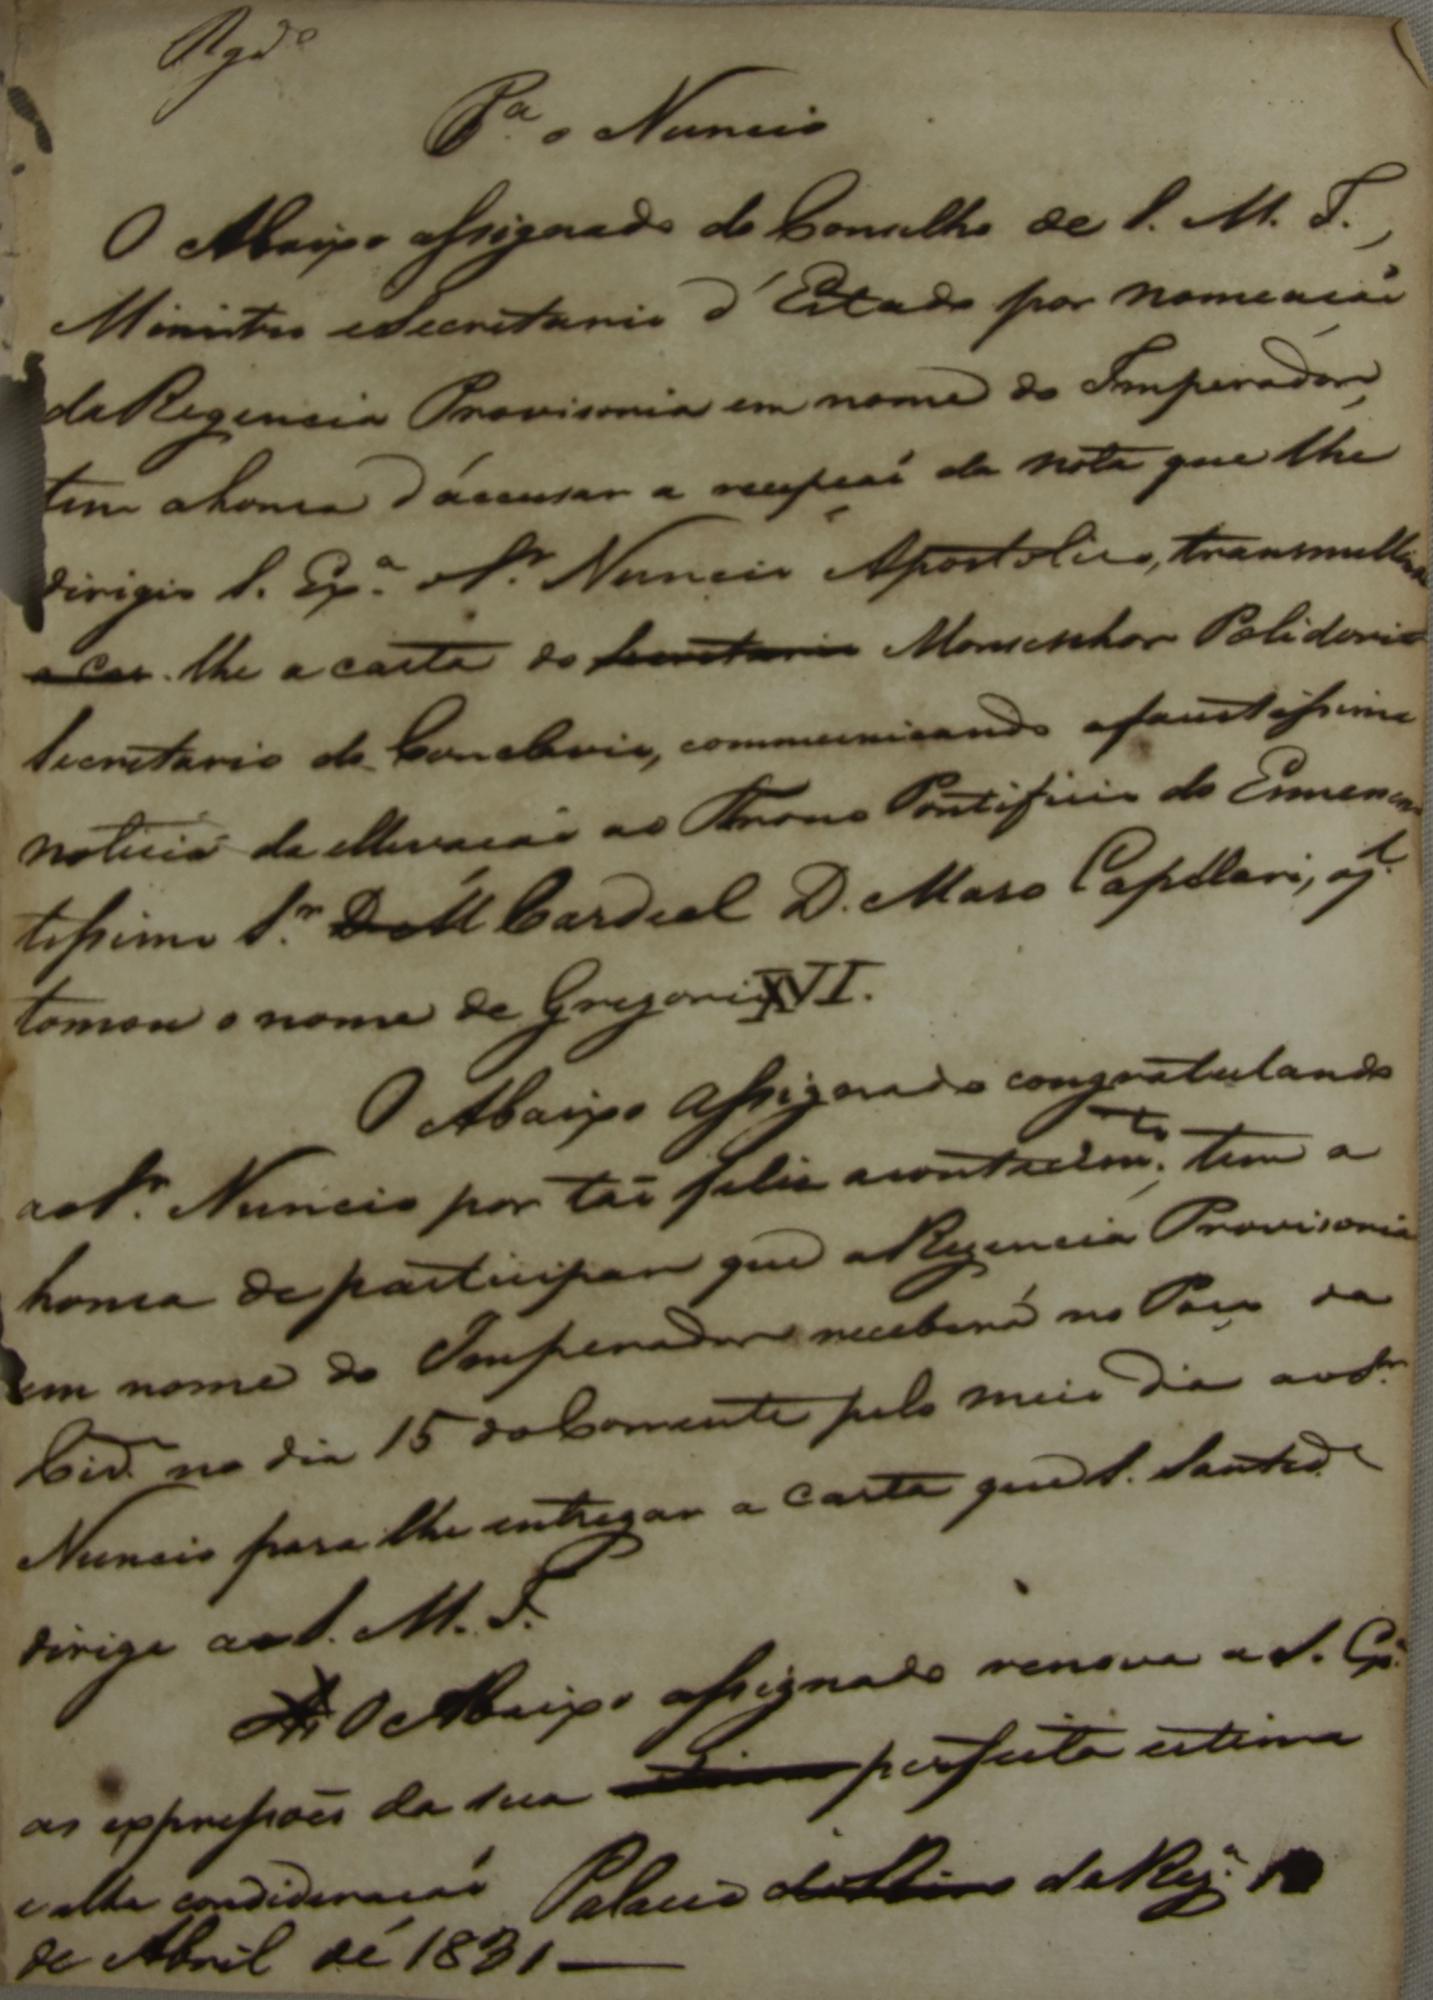 Rgdo
Pa. o Nuncio
O Abaixo assignado do Conselho de S. M. I.,
Ministro e Secretario d'Estado por nomeação
da Regencia Provisoria em nome do Imperador,
tem a honra d'accusar a recepção da nota que lhe
dirigio S. Exa. o Sr. Nuncio Apostolico, transmittindo
a car. lhe a carta do Secretario Monsenhor Polidorio
Secretario do Conclavio, communicando a faustissima
noticia da ellevação ao Throno Pontificio do Eminen
tissimo Sr. D. M Cardeal D. Mauro Capellari, q
tomou o nome de Gregorio XVI.
O Abaixo assignado congratulando
ao Sr. Nuncio por tão feliz acontecimto. tem a
honra de participar que a Regencia Provisoria
em nome do Imperador receberá no Paço da
Cide. no dia 15 do Corrente pelo meio dia ao Sr.
Nuncio para lhe entregar a carta que S. Santide
dirige a S. M. I.
O Abaixo assignado renova a S. Exa.
as expressões da sua perfeita estima
e alta condideração Palacio da Reg.a
de Abril de 1831